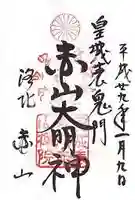 平成廿九年一月九日
皇城表鬼門
赤山大明神
洛北
赤山